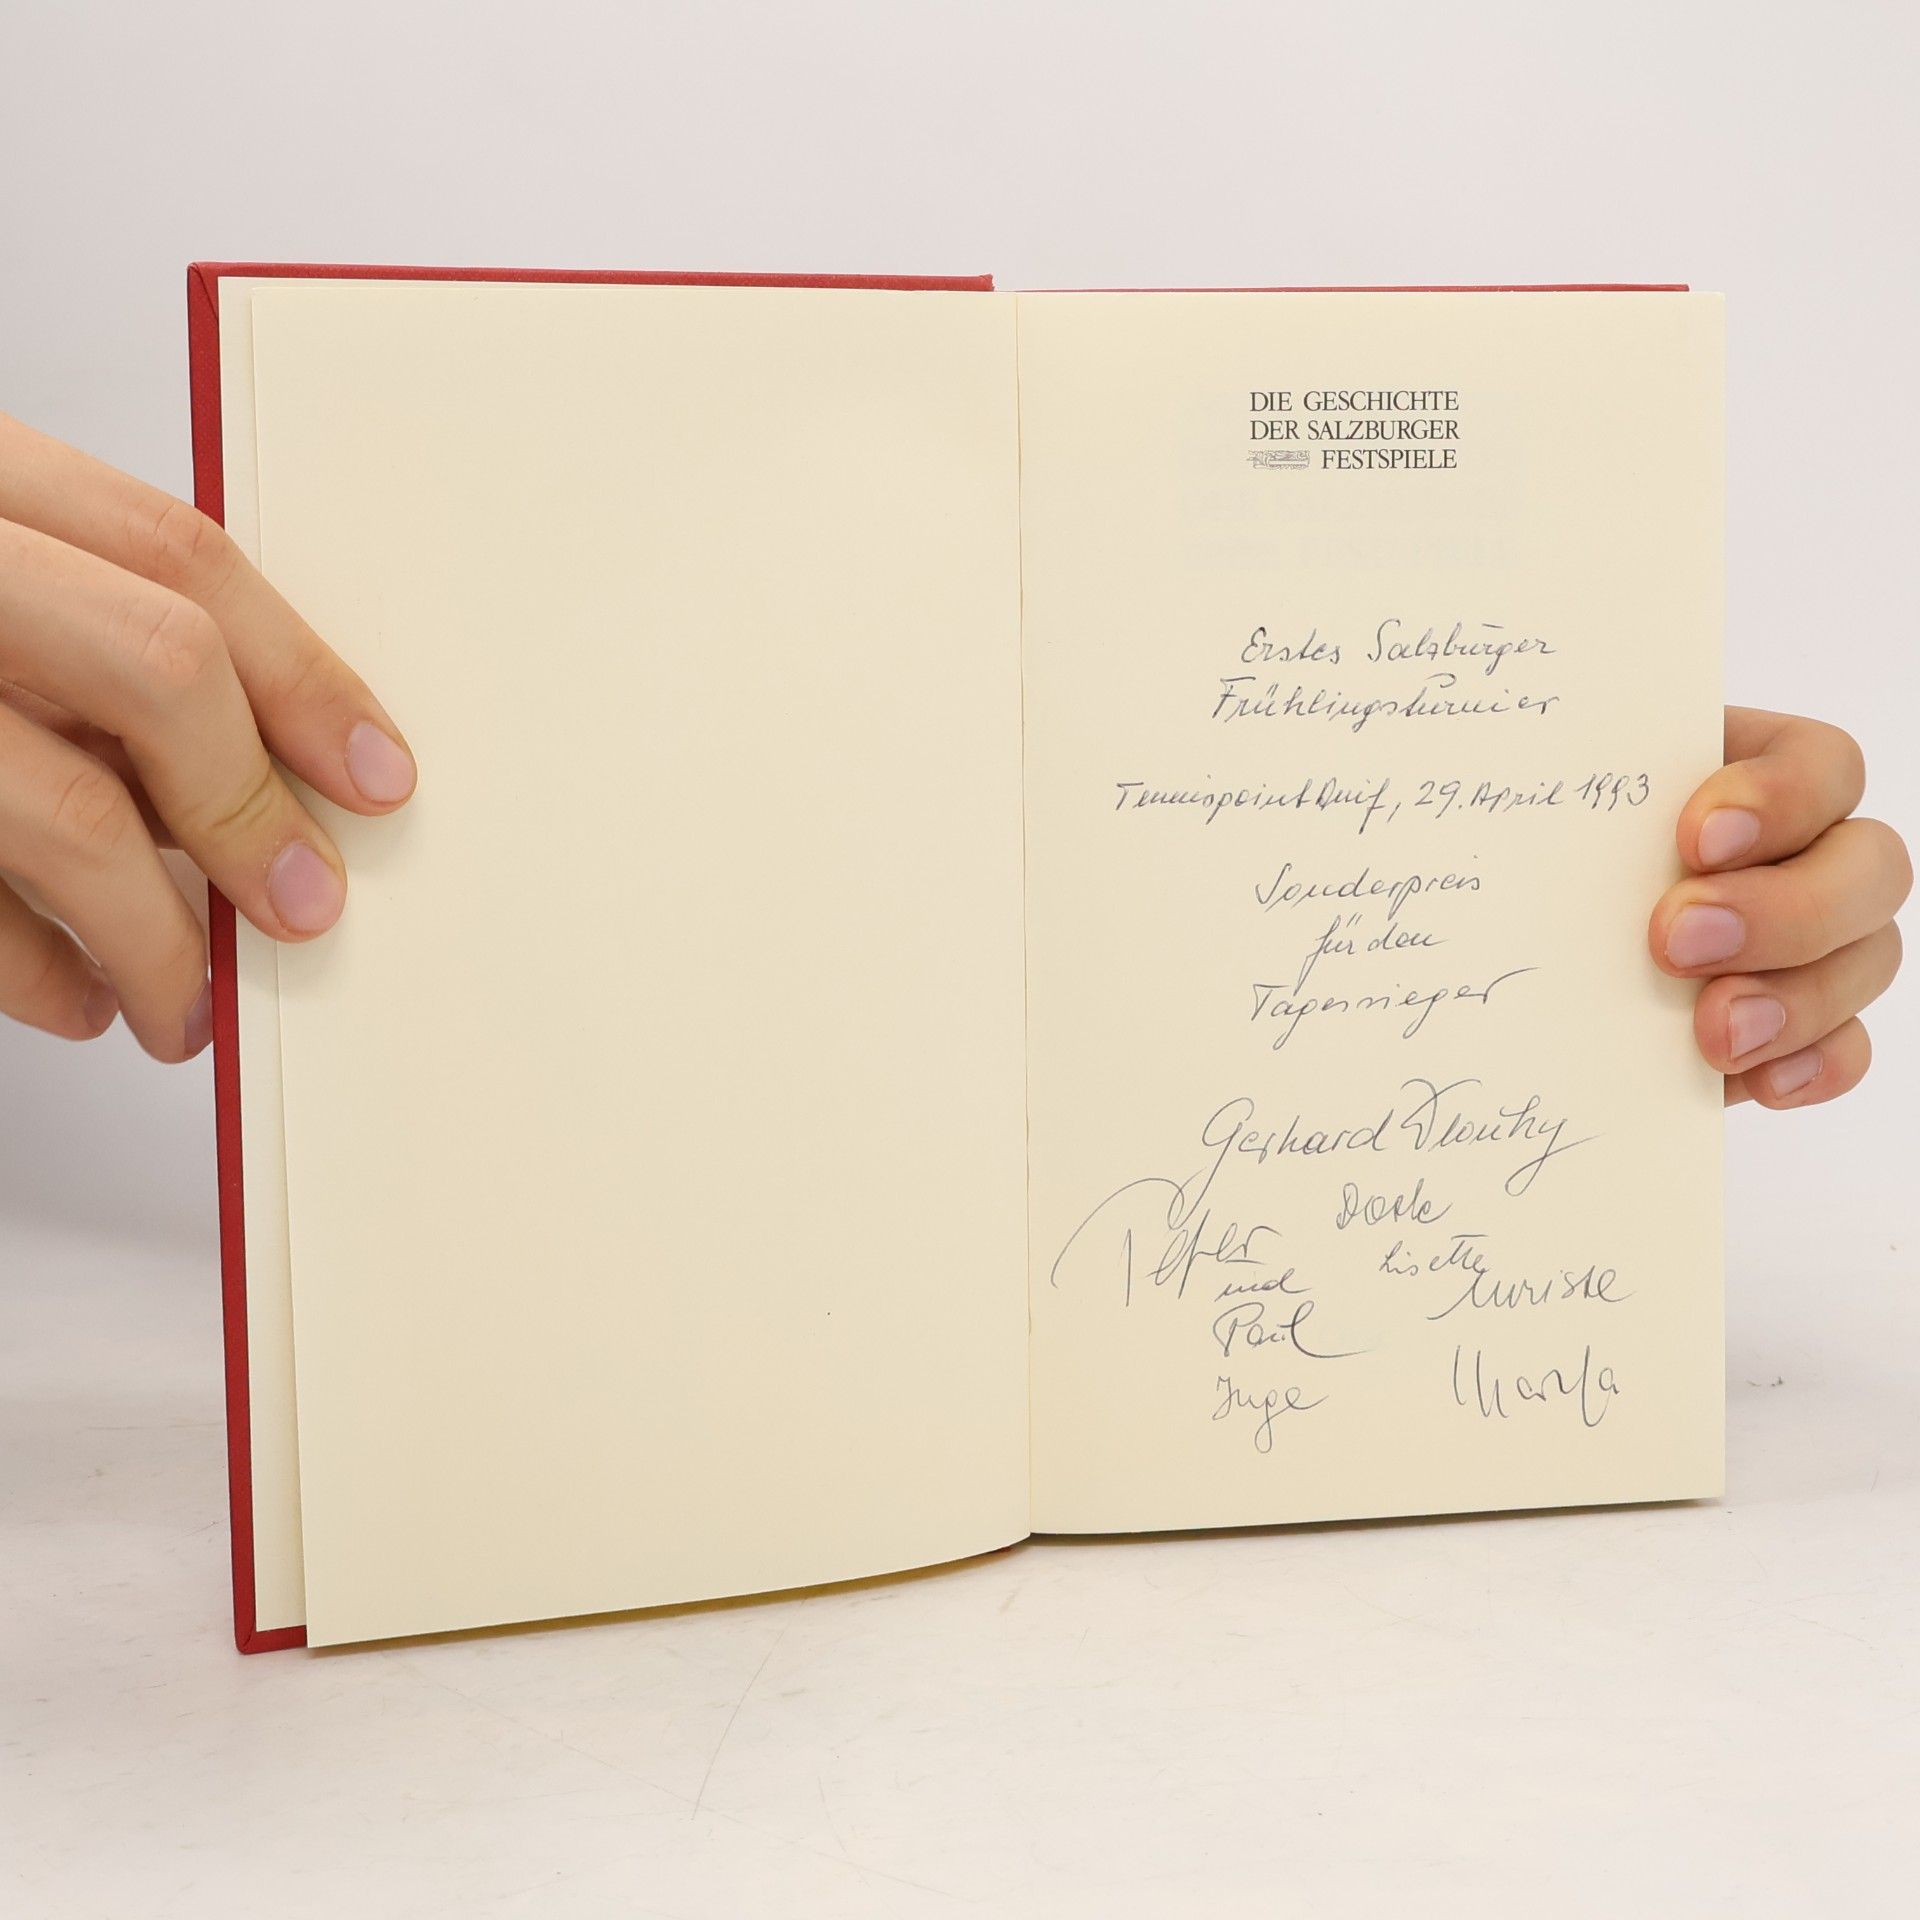 DIE GESCHICHTE
DER SALZBURGER
FESTSPIELE
Erstes Salzburger
Frühlingsturnier
Tennispoint Anif, 29. April 1993
Sonderpreis
für den
Tagessieger
Gerhard Dlouhy
Peter
und
Paul
Inge
Lisette